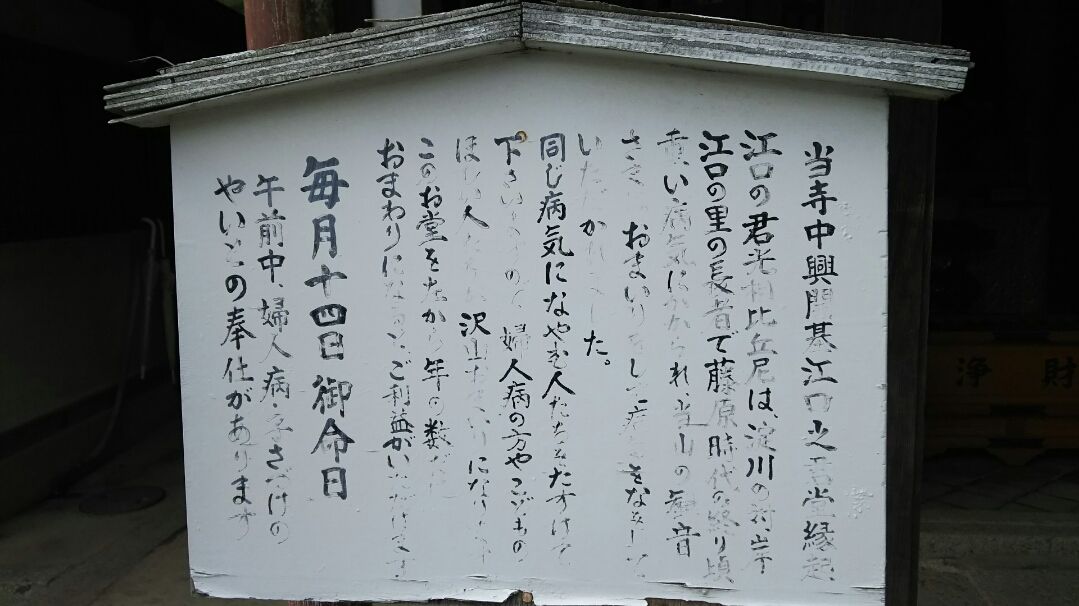 当寺中興開基江口之君堂縁起
江口の君光相比丘尼は、淀川の対岸
江口の里の長者で藤原時代の終り頃
重い病気にかかられ、当山の観音
さま おまいりをして病 をなおして
いただかれました。
同じ病気になやむ人たちをたすけて
下さい 婦人病の方やこどもの
ほしい人 沢山おまいりになります
このお堂を 年の数だけ
おまわりになると、ご利益がいただけます
毎月十四日御命日
午前中、婦人病・子さづけの
やいとの奉仕があります
浄財